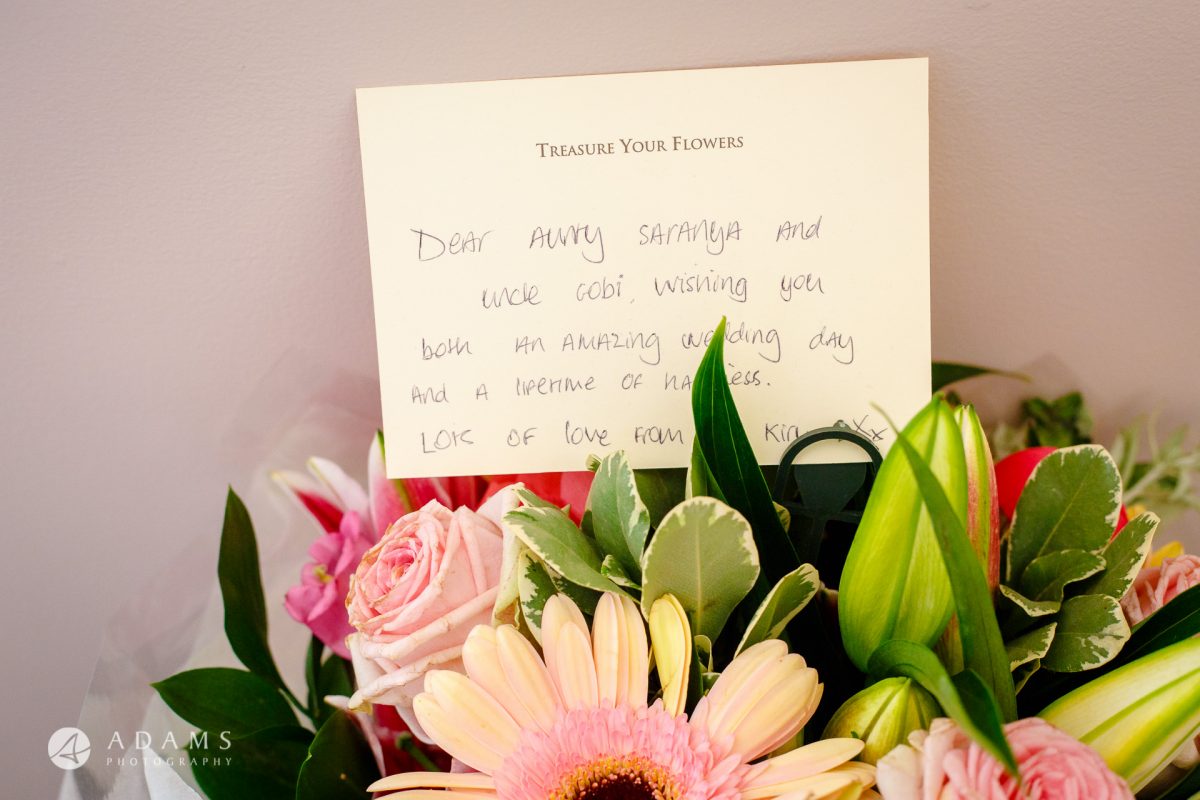 TREASURE YOUR FLOWERS
Dear Aunty Saranya and
uncle Gobi, wishing you
both an amazing wedding day
And A lifetime of happiness.
Lots of love from
ADAMS
PHOTOGRAPHY